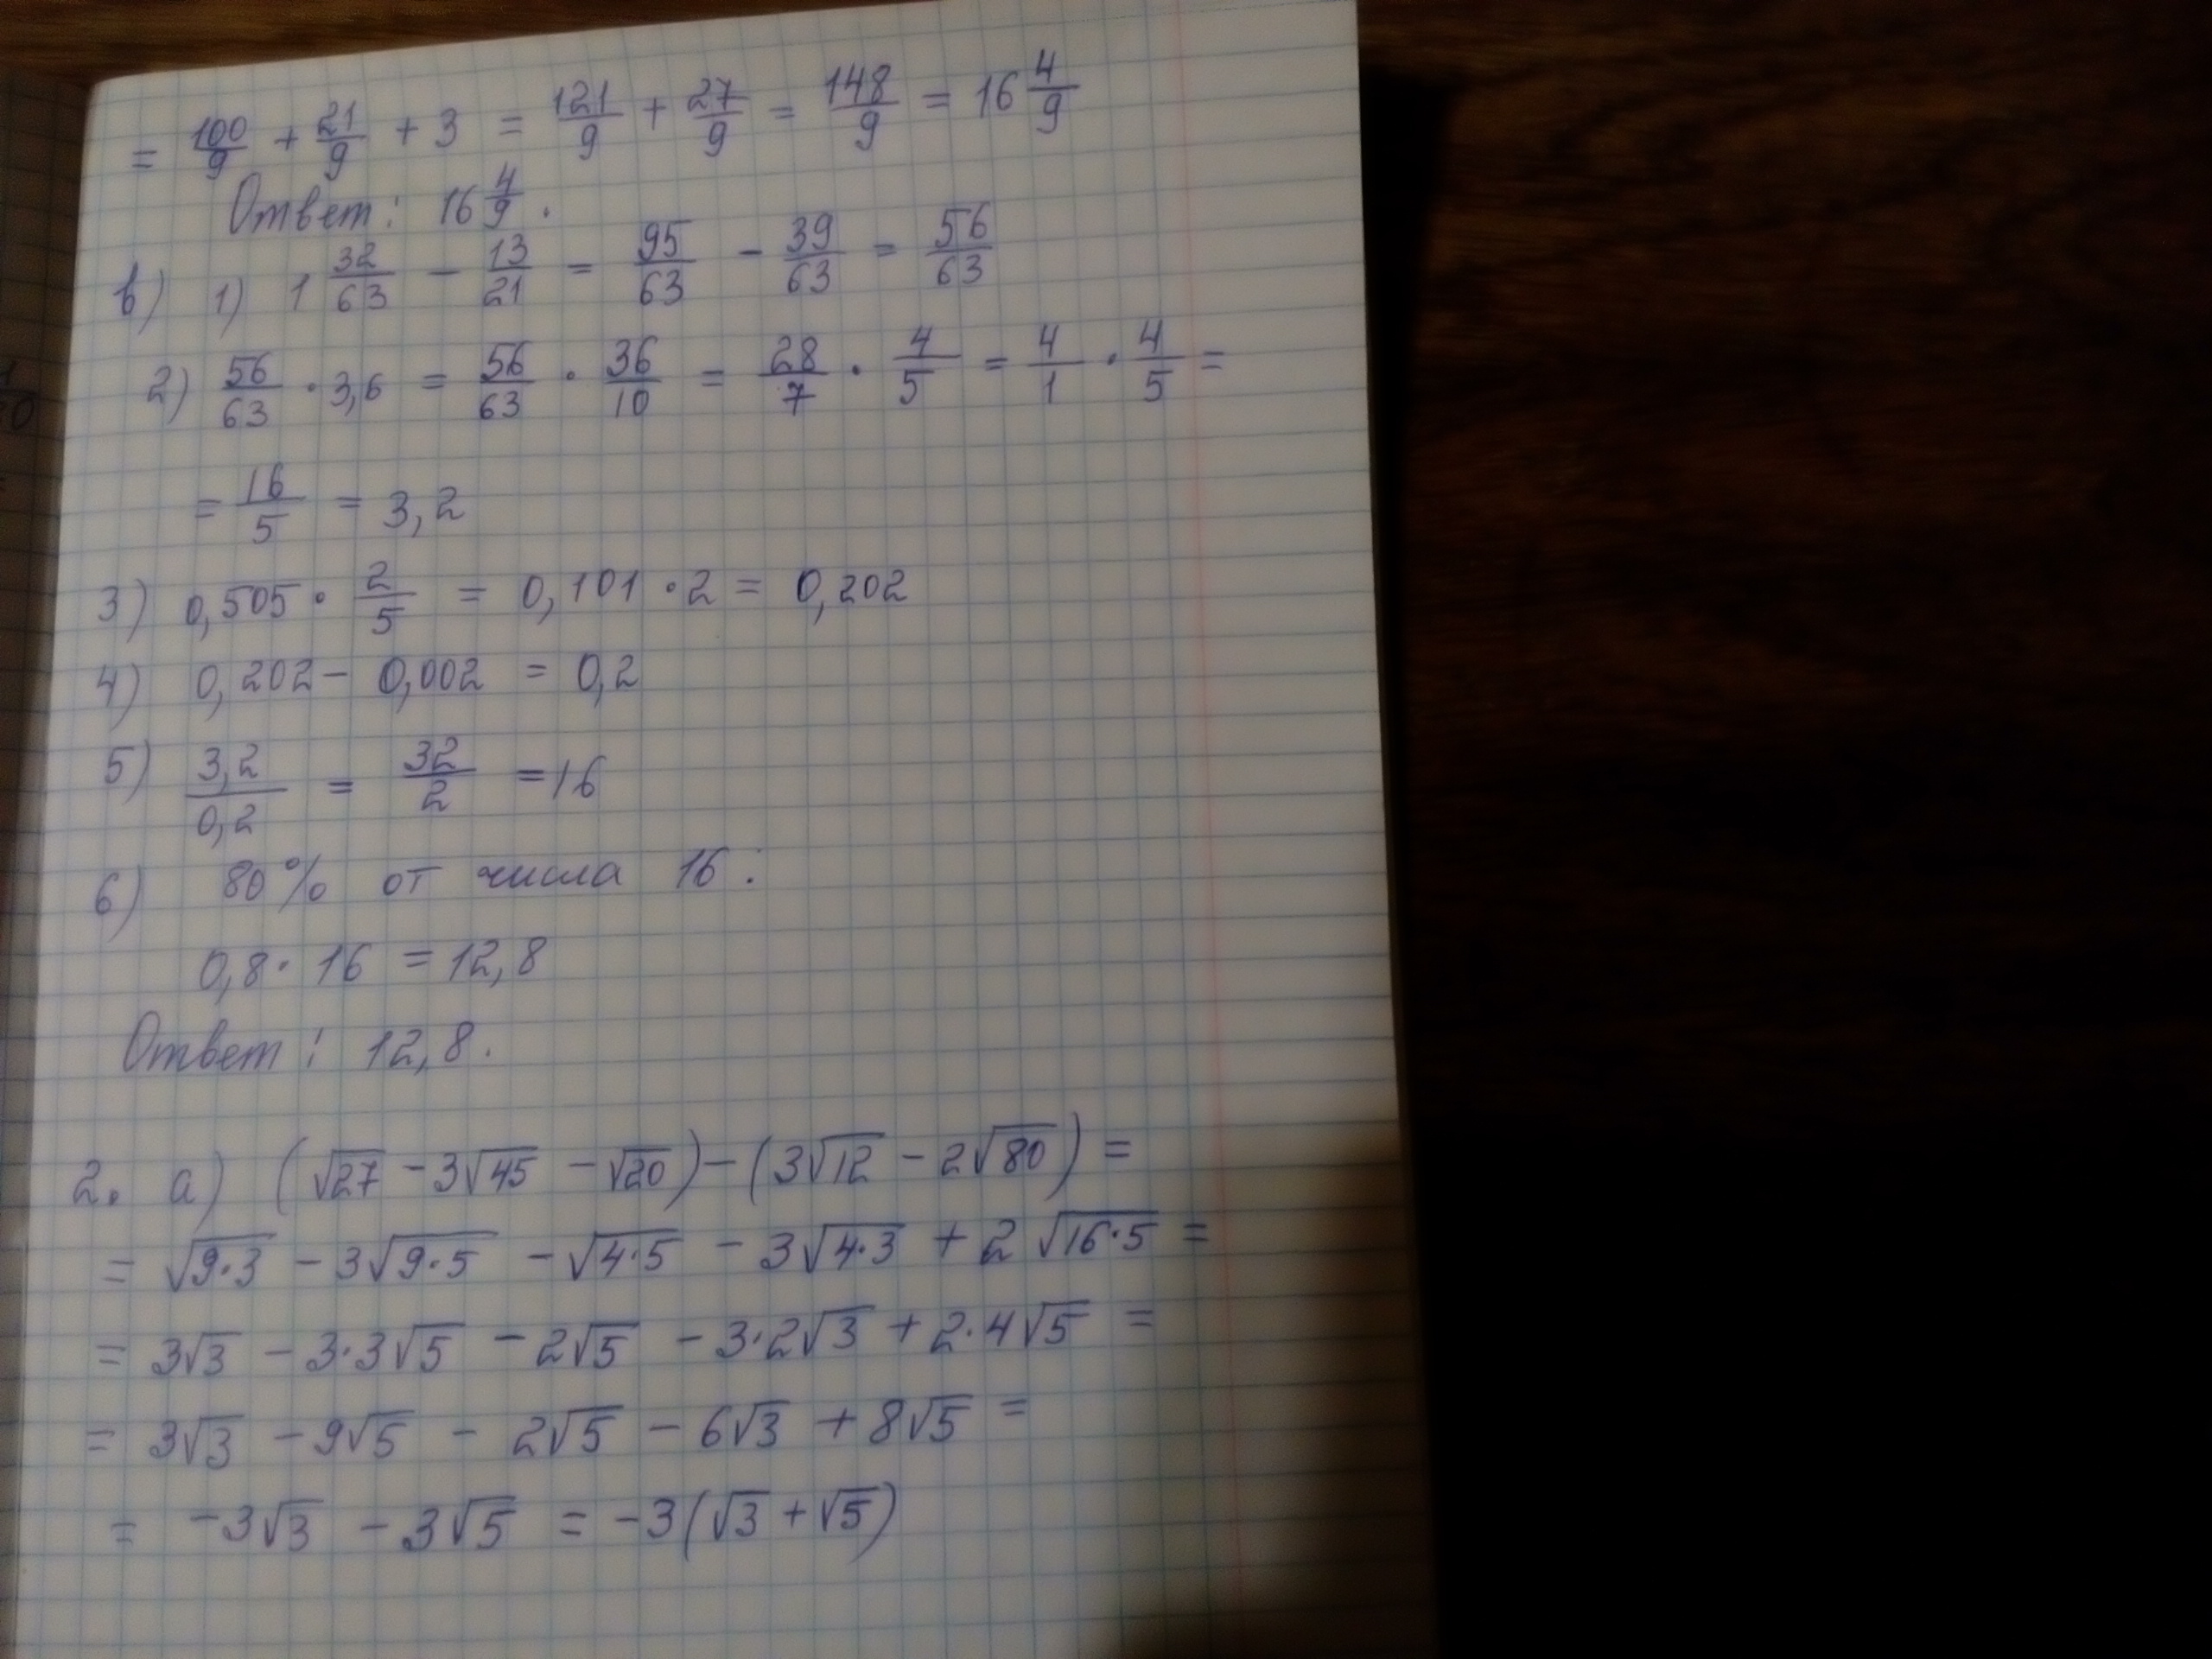 = 100/9 + 21/9 + 3 = 121/9 + 27/9 = 148/9 = 16 4/9
Ответ: 16 4/9.
в) 1) 1 32/63 - 13/21 = 95/63 - 39/63 = 56/63
2) 56/63 · 3,6 = 56/63 · 36/10 = 28/7 · 4/5 = 4/1 · 4/5 =
= 16/5 = 3,2
3) 0,505 · 2/5 = 0,101 · 2 = 0,202
4) 0,202 - 0,002 = 0,2
5) 3,2/0,2 = 32/2 = 16
6) 80% от числа 16:
0,8 · 16 = 12,8
Ответ: 12,8.
2. а) (√27 - 3√45 - √20) - (3√12 - 2√80) =
= √(9·3) - 3√(9·5) - √(4·5) - 3√(4·3) + 2√(16·5) =
= 3√3 - 3·3√5 - 2√5 - 3·2√3 + 2·4√5 =
= 3√3 - 9√5 - 2√5 - 6√3 + 8√5 =
= -3√3 - 3√5 = -3(√3 + √5)